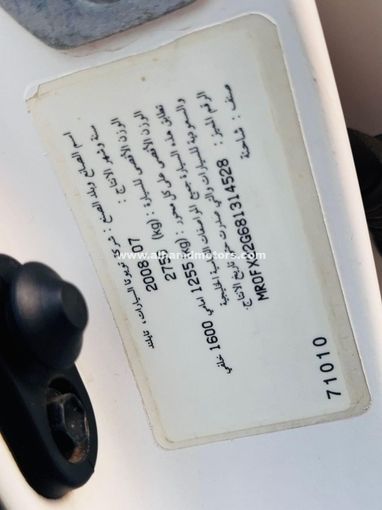 اسم الصانع وبلد الصنع : شركة تويوتا للسيارات ، تايلند
سنة وشهر الإنتاج : 2008 07
الوزن الأقصى للسيارة : (kg) 2755
الوزن الأقصى على كل محور : (kg) 1255 أمامي 1600 خلفي
تطابق هذه السيارة جميع المواصفات القياسية الخليجية
والسعودية للسيارات والتي صدرت حتى تاريخ الإنتاج
الرقم المميز : MR0FX22G681314528
صنف : شاحنة
71010
www.alharidmotors.com